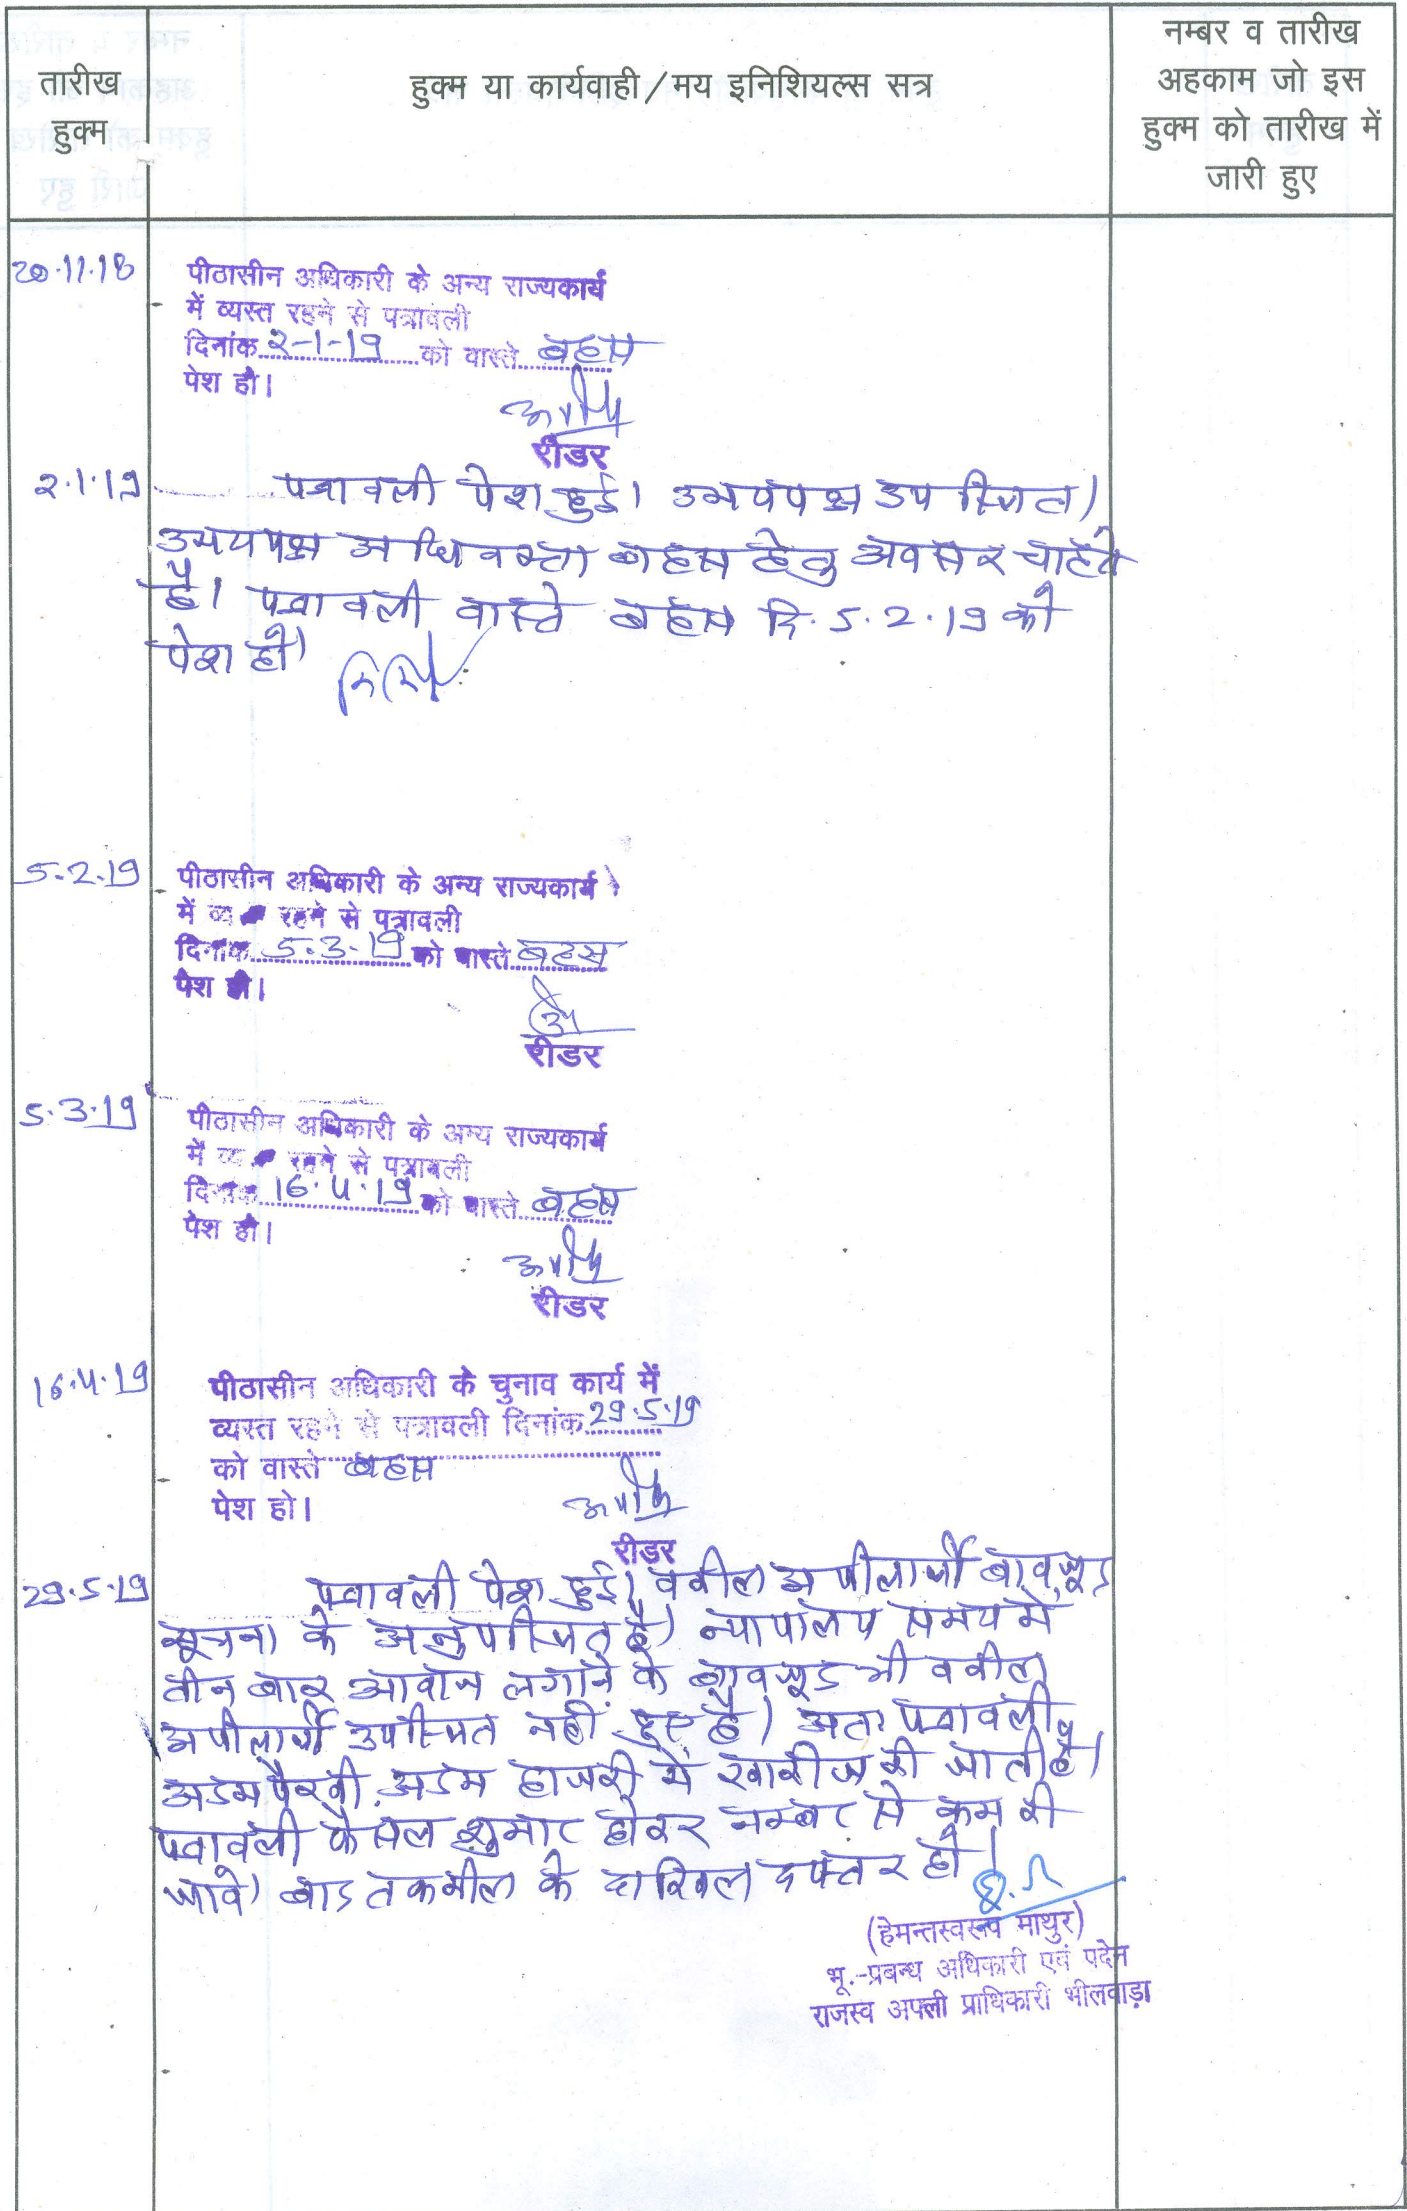 तारीख
हुक्म
हुक्म या कार्यवाही/मय इनिशियल्स सत्र
नम्बर व तारीख
अहकाम जो इस
हुक्म को तारीख में
जारी हुए
20.11.18
पीठासीन अधिकारी के अन्य राज्यकार्य
में व्यस्त रहने से पत्रावली
दिनांक 2-1-19 को वास्ते बहस
पेश हो।
रीडर
2.1.19 पत्रावली पेश हुई। उभयपक्ष उपस्थित।
उभयपक्ष अधिवक्ता बहस हेतु अवसर चाहते
है। पत्रावली वास्ते बहस दि. 5.2.19 को
पेश हो।
5.2.19
पीठासीन अधिकारी के अन्य राज्यकार्य
में व्य रहने से पत्रावली
दिनांक 5.3.19 को वास्ते बहस
पेश हो।
रीडर
5.3.19
पीठासीन अधिकारी के अन्य राज्यकार्य
में व्य रहने से पत्रावली
दिनांक 16.4.19 को वास्ते बहस
पेश हो।
रीडर
16.4.19
पीठासीन अधिकारी के चुनाव कार्य में
व्यस्त रहने से पत्रावली दिनांक 29.5.19
को वास्ते बहस
पेश हो।
रीडर
29.5.19 पत्रावली पेश हुई। वकील अपीलार्थी बावजूद
सूचना के अनुपस्थित है। न्यायालय समय में
तीन बार आवाज लगाने के बावजूद भी वकील
अपीलार्थी उपस्थित नहीं हुए है। अतः पत्रावली
अदम पैरवी व अदम हाजरी में खारीज की जाती है।
पत्रावली फैसल शुमार होकर नम्बर से कम की
जावे। बाद तकमील के दाखिल दफ्तर हो।
(हेमन्तस्वरूप माथुर)
भू.-प्रबन्ध अधिकारी एवं पदेन
राजस्व अपीली प्राधिकारी भीलवाड़ा